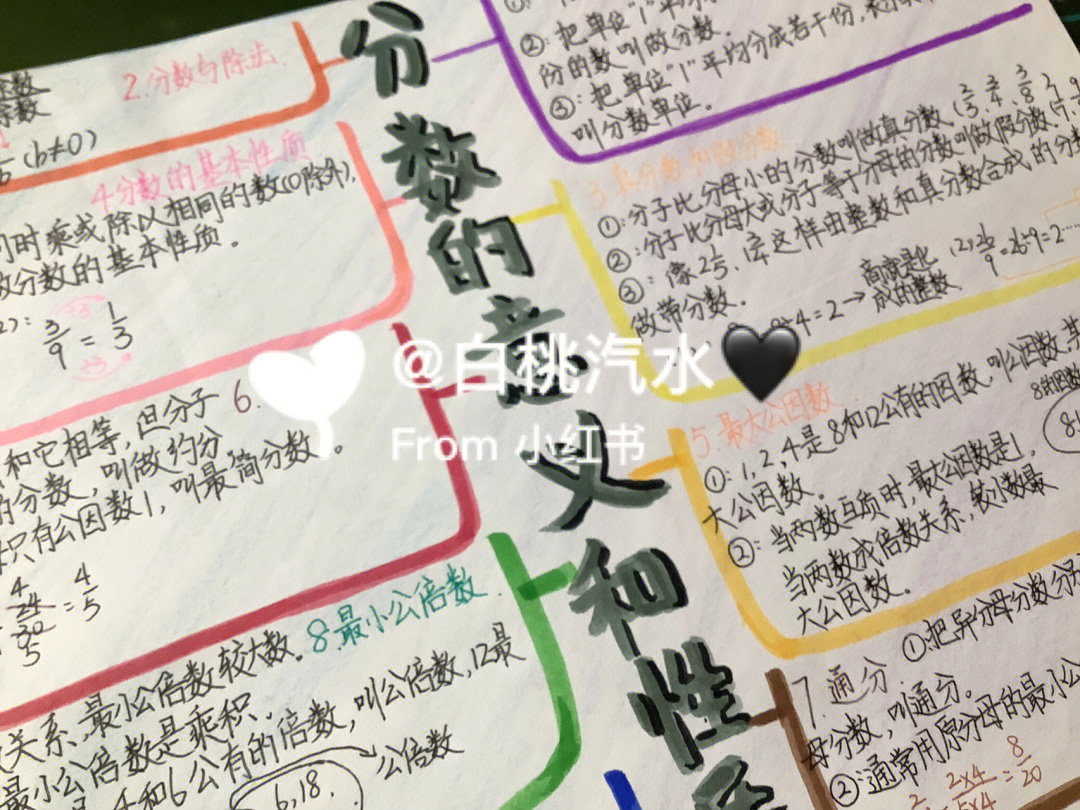 分数的意义和性
2.分数与除法
(b≠0)
4分数的基本性质
同时乘或除以相同的数(0除外),
做分数的基本性质。
3/9 = 1/3
和它相等,但分子
的分数,叫做约分。
只有公因数1,叫最简分数。
6.
24/30 = 4/5
8.最小公倍数
关系,最小公倍数较大数。
最小公倍数是乘积.
和6公有的倍数,叫公倍数,12最
6,18,
公倍数
②:把单位"1"平均
份的数叫做分数.
③:把单位"1"平均分成若干份,
叫分数单位。
3.真分数和假分数
①:分子比分母小的分数叫做真分数.(2/3、3/4、3/8
②:分子比分母大或分子等于分母的分数叫做假分数
③:像2 1/5、这样由整数和真分数合成的分数
做带分数.
÷4=2→
商就是化
成的整数
=26÷9=2······
5.最大公因数
①:1,2,4是8和12公有的因数,叫公因数.
大公因数.
②:当两数互质时,最大公因数是1.
当两数成倍数关系,较小数最
大公因数.
7.通分
①:把异分母分数分别
母分数,叫通分。
②:通常用原分母的最小公
2×4
5×4
=8/20
@白桃汽水
From 小红书